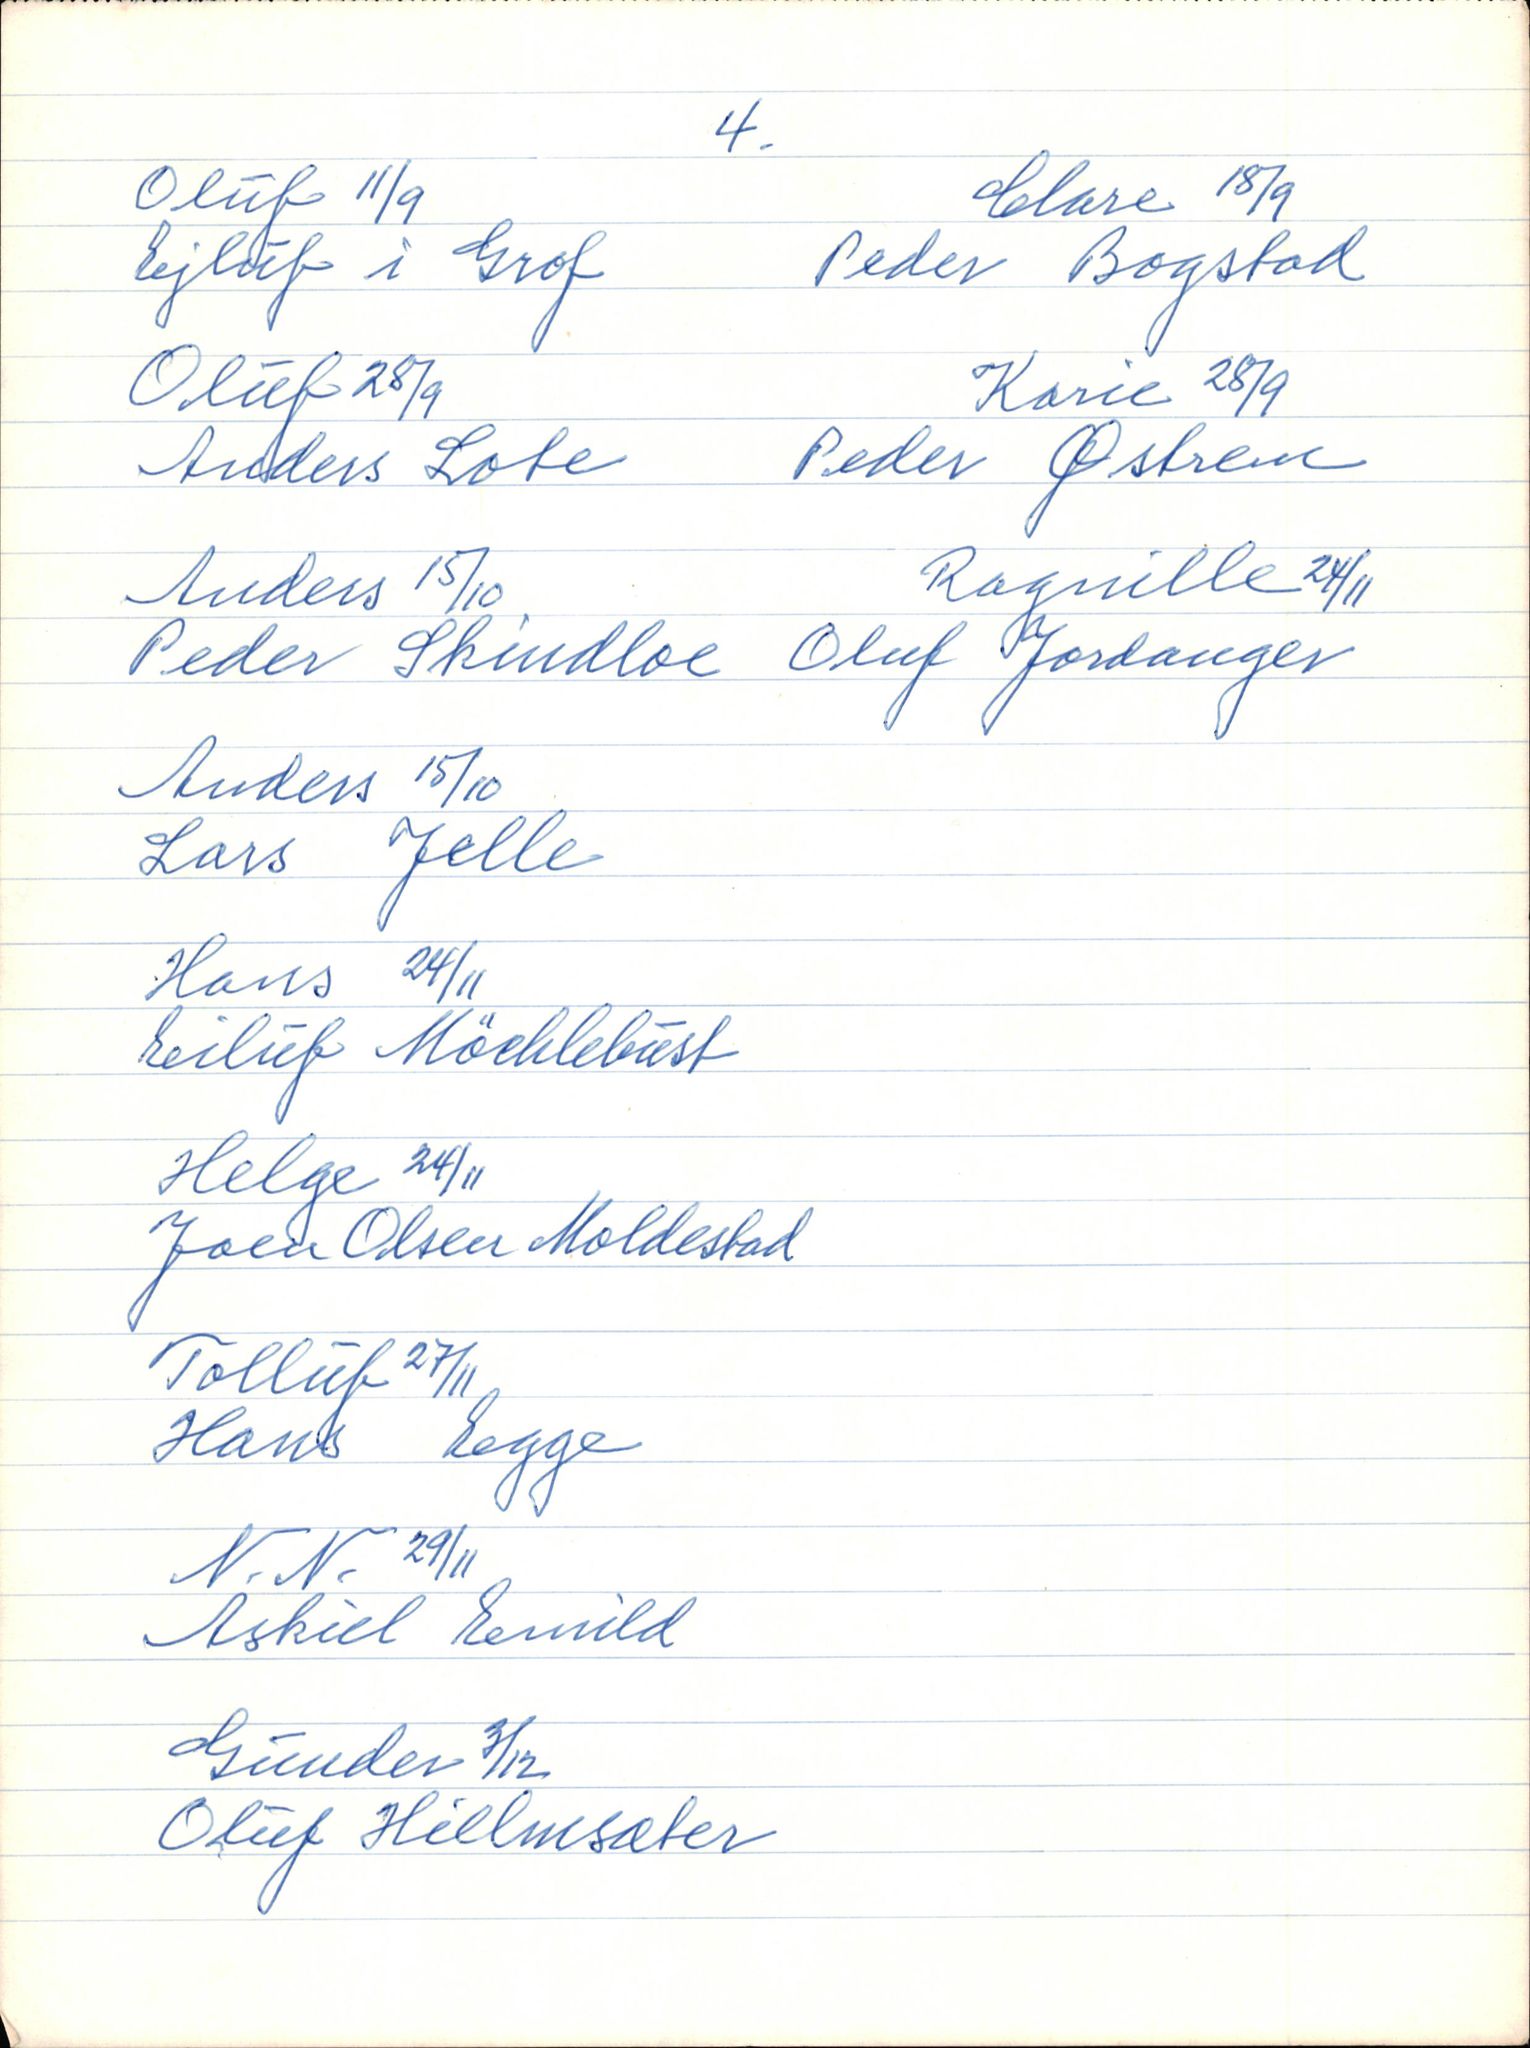 4.
Olūf 11/9
Ejlūf i Grof
Olūf 28/9
Anders Lote
Anders 15/10
Peder Skindloe
Anders 15/10
Lars Jelle
Hans 24/11
Eilūf Möcklebūst
Helge 24/11
Joen Olsen Moldestad
Tollūf 27/11
Hans Egge
N. N. 29/11
Askiel Eemild
Gūnder 3/12
Olūf Hillmsæter
Clare 18/9
Peder Bogstad
Karie 28/9
Peder Østrem
Ragnille 24/11
Oluf Jordanger